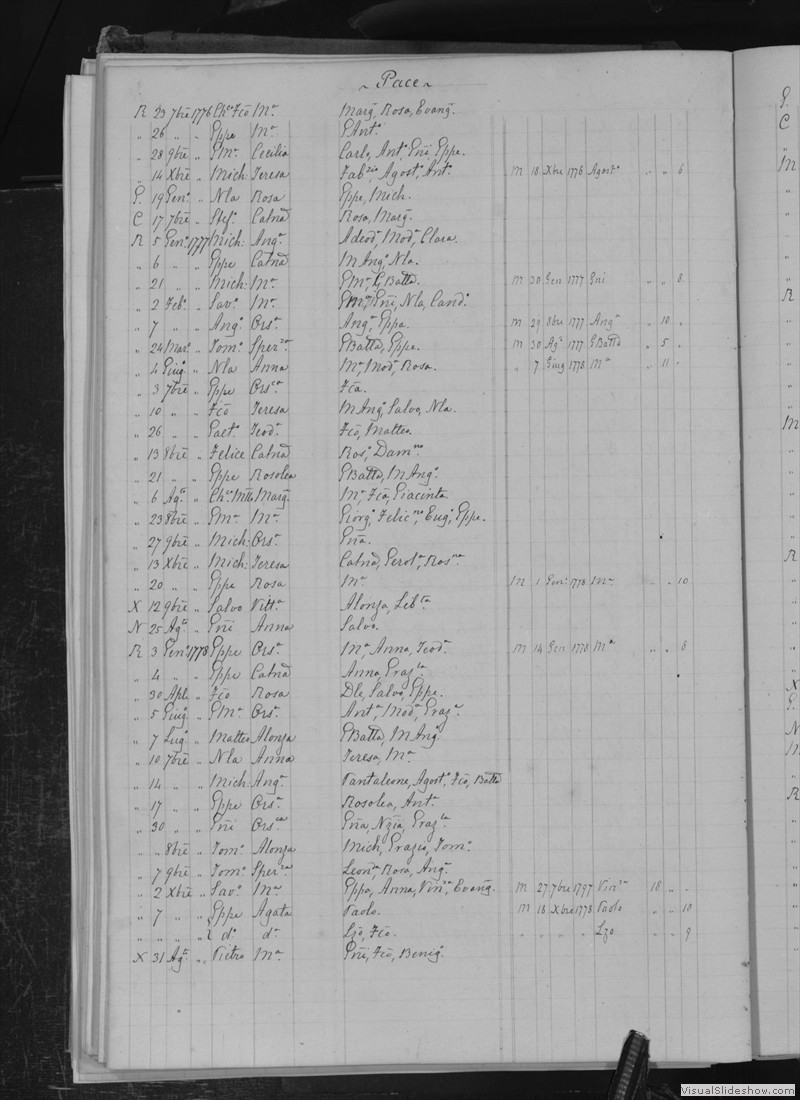 ~ Pace ~
R 23 7bre 1776 Chco Fco Ma Marga, Rosa, Evanga
" 26 " " Gppe Ma GAnto
" 28 9bre " GMa Cecilia Carlo, Anto, Gni Gppe.
" 14 Xbre " Mich: Teresa Fabzio, Agosto, Anto. M 18 Xbre 1776 Agosto " " 6
G. 19 Geno " Nla Rosa Gppe, Mich.
C 17 7bre " Stefo Catna Rosa, Marga
R 5 Geno 1777 Mich: Anga Adeoda, Moda, Clara.
" 6 " " Gppe Catna MAnga, Nla.
" 21 " " Mich: Ma GMa, GBatta. M 30 Gen 1777 Gni " " 8
" 2 Febo " Savo Ma GMa, Gni, Nla, Cando
" 7 " " Ango Orsa Anga, Gppa. M 29 8bre 1777 Anga " 10 "
" 24 Maro " Tomo Sperza GBatta, Gppe. M 30 Ago 1777 GBatta " 5 "
" 4 Giugo " Nla Anna Ma, Moda, Rosa. " 7 Giug 1778 Ma " 11 "
" 3 7bre " Gppe Orsca Fca.
" 10 " " Fco Teresa MAngo, Salvo, Nla.
" 26 " " Gaeto Teoda Fco, Matteo.
" 13 8bre " Felice Catna Roso, Damno
" 21 " " Gppe Rosolea GBatta, MAngo
" 6 Ago " Chco Mtto Marga Ma, Fca, Giacinta
" 23 8bre " GMa Ma Giorgo, Felicno, Eugo, Gppe.
" 27 9bre " Mich: Orsa Gna.
" 13 Xbre " Mich: Teresa Catna, Gerola, Rosna
" 20 " " Gppe Rosa Ma M 1 Geno 1778 Ma " " 10
X 12 9bre " Salvo Vitta Alonza, Libta
N 25 Ago " Gni Anna Salvo.
R 3 Geno 1778 Gppe Orsa Ma, Anna, Teoda M 14 Gen 1778 Ma " " 8
" 4 " " Gppe Catna Anna, Grazla
" 30 Aple " Fco Rosa Dle, Salvo, Gppe.
" 5 Giugo " GMa Orsa Anta, Moda, Graza
" 7 Lugo " Matteo Alonza GBatta, MAngo
" 10 7bre " Nla Anna Teresa, Ma
" 14 " " Mich: Anga Pantaleone, Agosto, Fco, Batta
" 17 " " Gppe Orsa Rosolea, Anta
" 30 " " Gni Orsca Gna, Nzia, Grazla
" " 8bre " Tomo Alonza Mich, Grazio, Tomo
" 7 9bre " Tomo Sperza Leona, Rosa, Anga
" 2 Xbre " Savo Ma Gppa, Anna, Vinza, Evanga M 27 7bre 1797 Vinza 18 " "
" 7 " " Gppe Agata Paolo. M 18 Xbre 1778 Paolo " " 10
" " " " do do Lzo, Fco. " " " " Lzo " " 9
X 31 Ago " Pietro Ma Gni, Fco, Benigo
G.
C
M
R
M
R
X
G.
N
M
R
VisualSlideshow.com